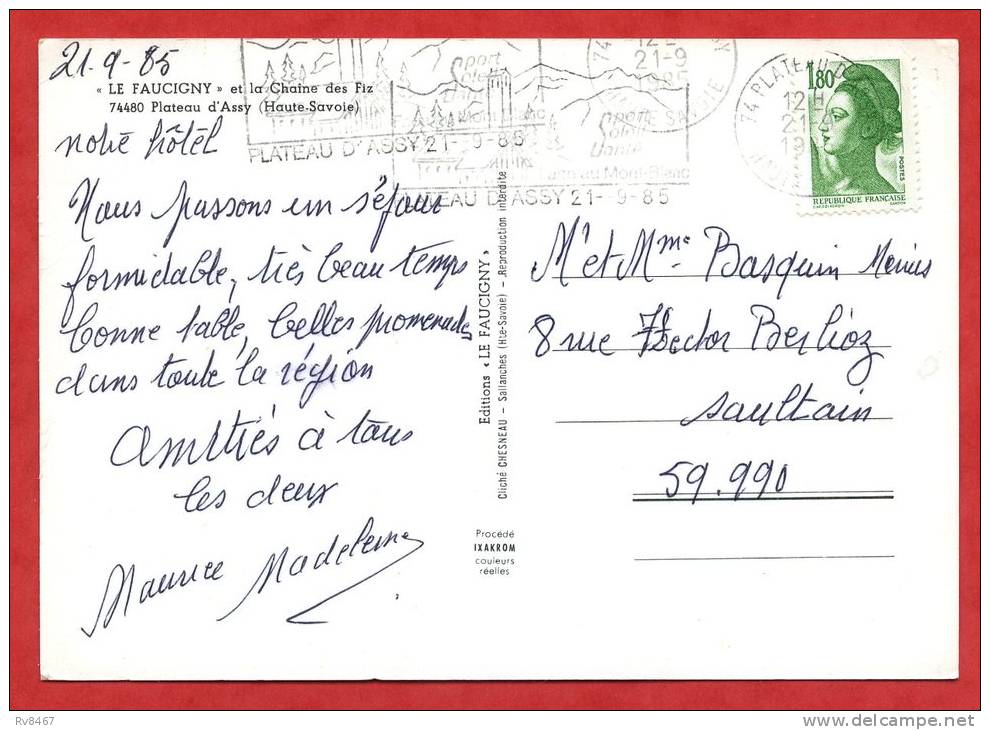 21-9-85
« LE FAUCIGNY » et la Chaîne des Fiz
74480 Plateau d'Assy (Haute-Savoie)
notre hôtel
Nous passons un séjour
formidable, très beau temps
bonne table, belles promenades
dans toute la région
Amitiés à tous
les deux
Maurice Madeleine
Sport
Soleil
Mont-Blanc
PLATEAU D'ASSY 21-9-85
Sport
Soleil
Santé
Face au Mont-Blanc
PLATEAU D'ASSY 21-9-85
21-9
1985
74 PLATEAU D'
12H
21-9
19
1,80
POSTES
REPUBLIQUE FRANÇAISE
GANDON
Editions « LE FAUCIGNY »
Cliché CHESNEAU - Sallanches (Hte-Savoie) - Reproduction interdite
Procédé
IXAKROM
couleurs
réelles
Mr et Mme Basquin Marius
8 rue Hector Berlioz
Saultain
59.990
Rv8467
www.delcampe.net